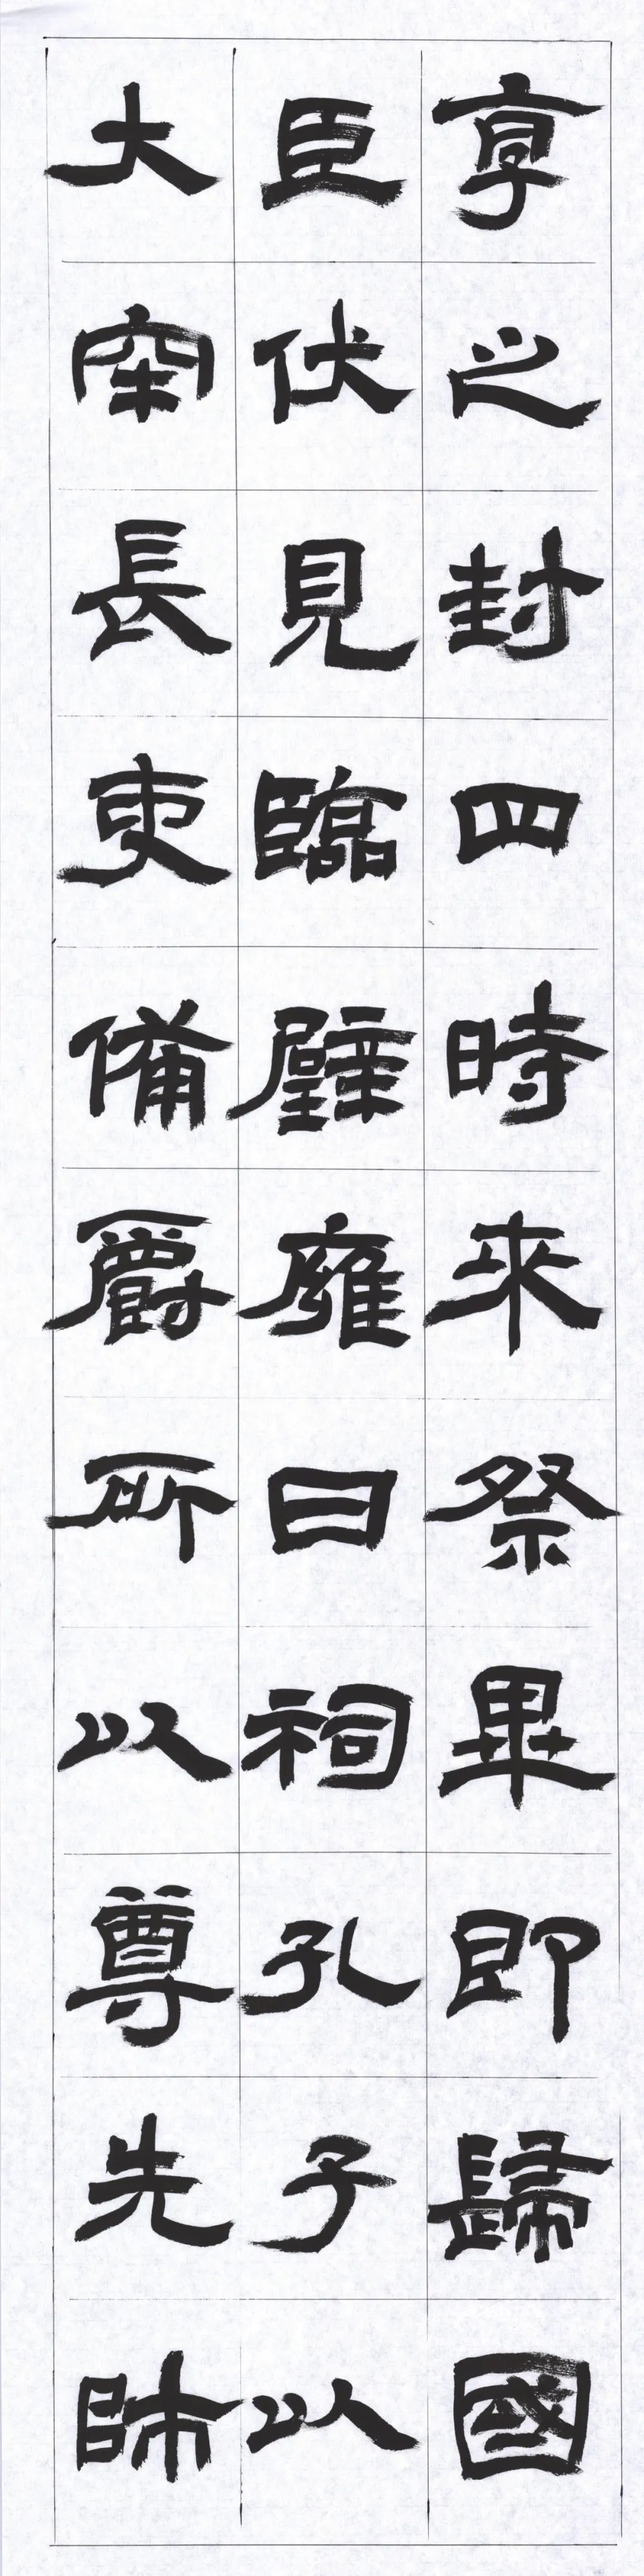 享之封四時來祭畢即歸國
臣伏見臨璧雍曰祠孔子以
大牢長吏備爵所以尊先師